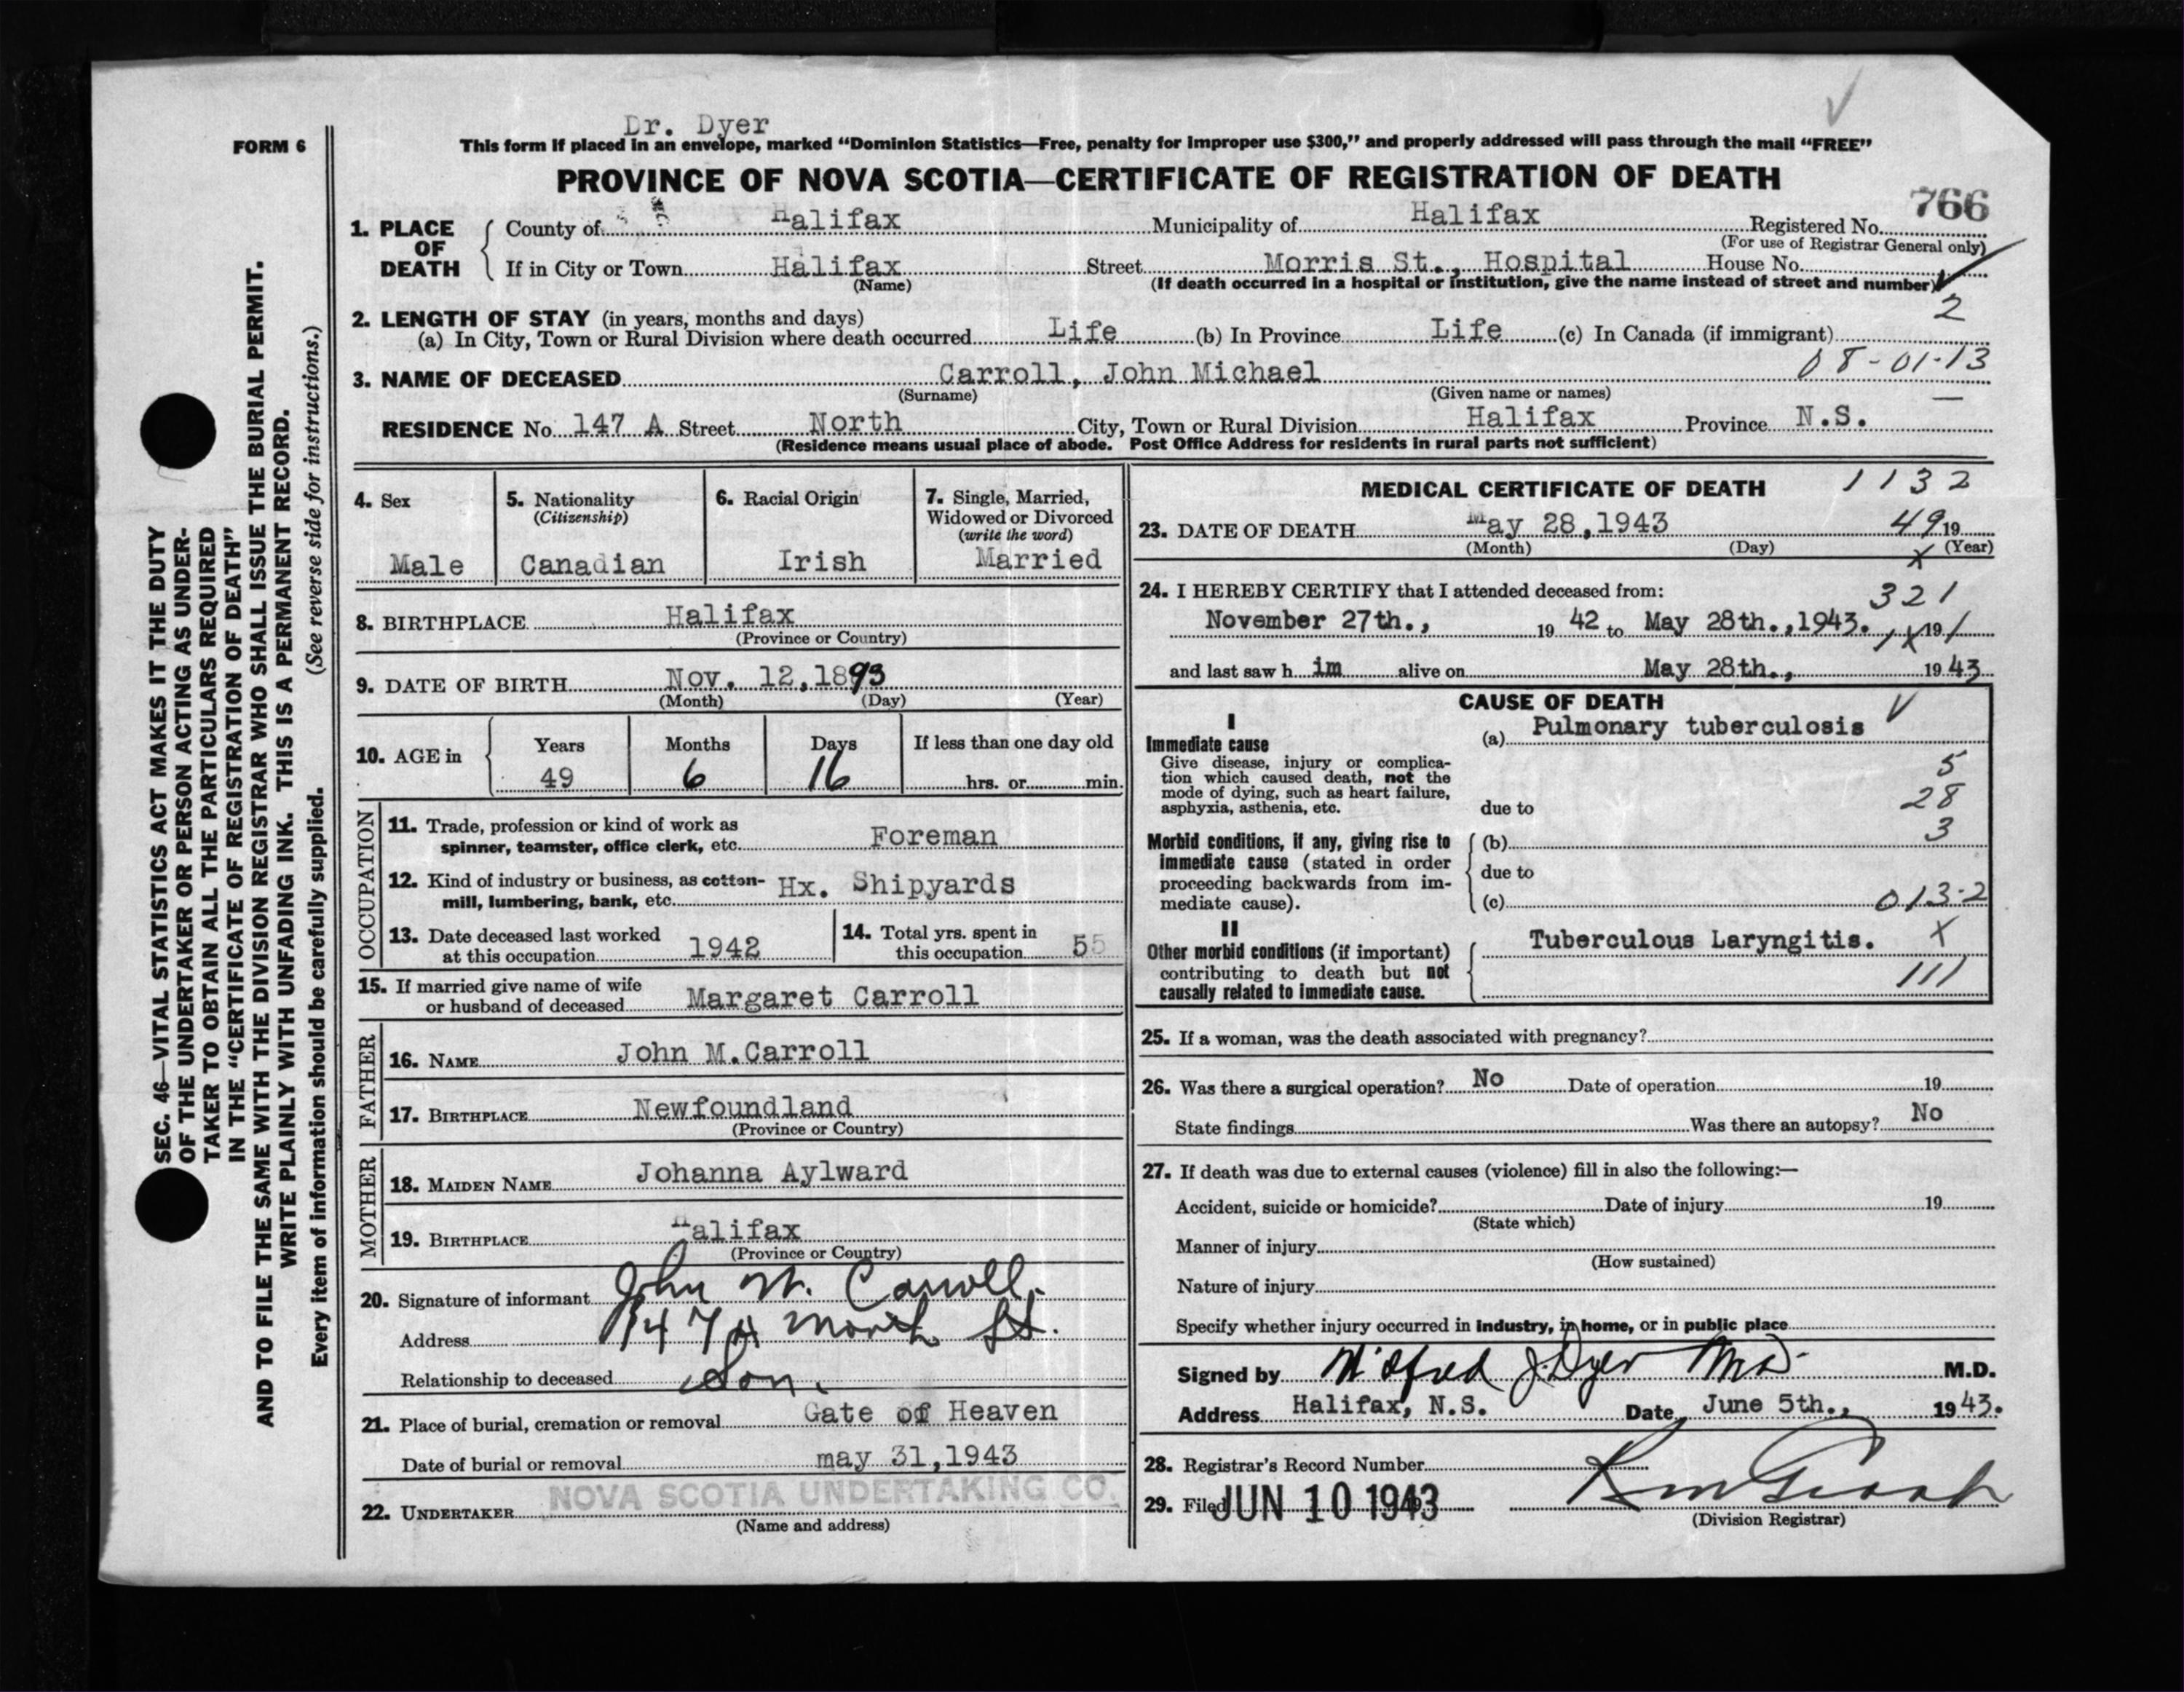 Dr. Dyer
FORM 6
This form if placed in an envelope, marked “Dominion Statistics—Free, penalty for improper use $300,” and properly addressed will pass through the mail “FREE”
PROVINCE OF NOVA SCOTIA—CERTIFICATE OF REGISTRATION OF DEATH
766
1. PLACE OF DEATH
County of Halifax Municipality of Halifax Registered No.
(For use of Registrar General only)
If in City or Town Halifax Street Morris St., Hospital House No.
(Name) (If death occurred in a hospital or institution, give the name instead of street and number)
2
2. LENGTH OF STAY (in years, months and days)
(a) In City, Town or Rural Division where death occurred Life (b) In Province Life (c) In Canada (if immigrant)
08-01-13
3. NAME OF DECEASED Carroll, John Michael
(Surname) (Given name or names)
RESIDENCE No. 147 A Street North City, Town or Rural Division Halifax Province N.S.
(Residence means usual place of abode. Post Office Address for residents in rural parts not sufficient)
SEC. 46—VITAL STATISTICS ACT MAKES IT THE DUTY
OF THE UNDERTAKER OR PERSON ACTING AS UNDER-
TAKER TO OBTAIN ALL THE PARTICULARS REQUIRED
IN THE “CERTIFICATE OF REGISTRATION OF DEATH”
AND TO FILE THE SAME WITH THE DIVISION REGISTRAR WHO SHALL ISSUE THE BURIAL PERMIT.
WRITE PLAINLY WITH UNFADING INK. THIS IS A PERMANENT RECORD.
Every item of information should be carefully supplied. (See reverse side for instructions.)
4. Sex
Male
5. Nationality
(Citizenship)
Canadian
6. Racial Origin
Irish
7. Single, Married,
Widowed or Divorced
(write the word)
Married
8. BIRTHPLACE Halifax
(Province or Country)
9. DATE OF BIRTH Nov. 12,1893
(Month) (Day) (Year)
10. AGE in
Years Months Days If less than one day old
49 6 16 hrs. or min.
OCCUPATION
11. Trade, profession or kind of work as
spinner, teamster, office clerk, etc. Foreman
12. Kind of industry or business, as cotton-
mill, lumbering, bank, etc. Hx. Shipyards
13. Date deceased last worked
at this occupation 1942
14. Total yrs. spent in
this occupation 55
15. If married give name of wife
or husband of deceased Margaret Carroll
FATHER
16. NAME John M.Carroll
17. BIRTHPLACE Newfoundland
(Province or Country)
MOTHER
18. MAIDEN NAME Johanna Aylward
19. BIRTHPLACE Halifax
(Province or Country)
20. Signature of informant John W. Carroll.
Address 147A North St.
Relationship to deceased Son.
21. Place of burial, cremation or removal Gate of Heaven
Date of burial or removal may 31,1943
22. UNDERTAKER NOVA SCOTIA UNDERTAKING CO.
(Name and address)
MEDICAL CERTIFICATE OF DEATH 1132
23. DATE OF DEATH May 28,1943 49 19
(Month) (Day) (Year)
x
24. I HEREBY CERTIFY that I attended deceased from:
321
November 27th., 19 42 to May 28th.,1943. 19
and last saw h im alive on May 28th., 19 43
CAUSE OF DEATH
I
Immediate cause
Give disease, injury or complica-
tion which caused death, not the
mode of dying, such as heart failure,
asphyxia, asthenia, etc.
(a) Pulmonary tuberculosis
5
28
due to
3
Morbid conditions, if any, giving rise to
immediate cause (stated in order
proceeding backwards from im-
mediate cause).
(b)
due to
(c) 013-2
II
Other morbid conditions (if important)
contributing to death but not
causally related to immediate cause.
Tuberculous Laryngitis. X
111
25. If a woman, was the death associated with pregnancy?
26. Was there a surgical operation? No Date of operation 19
State findings Was there an autopsy? No
27. If death was due to external causes (violence) fill in also the following:—
Accident, suicide or homicide? Date of injury 19
(State which)
Manner of injury
(How sustained)
Nature of injury
Specify whether injury occurred in industry, in home, or in public place
Signed by Wilfred J. Dyer M.D. M.D.
Address Halifax, N.S. Date June 5th., 19 43.
28. Registrar's Record Number
29. Filed JUN 10 1943
(Division Registrar)